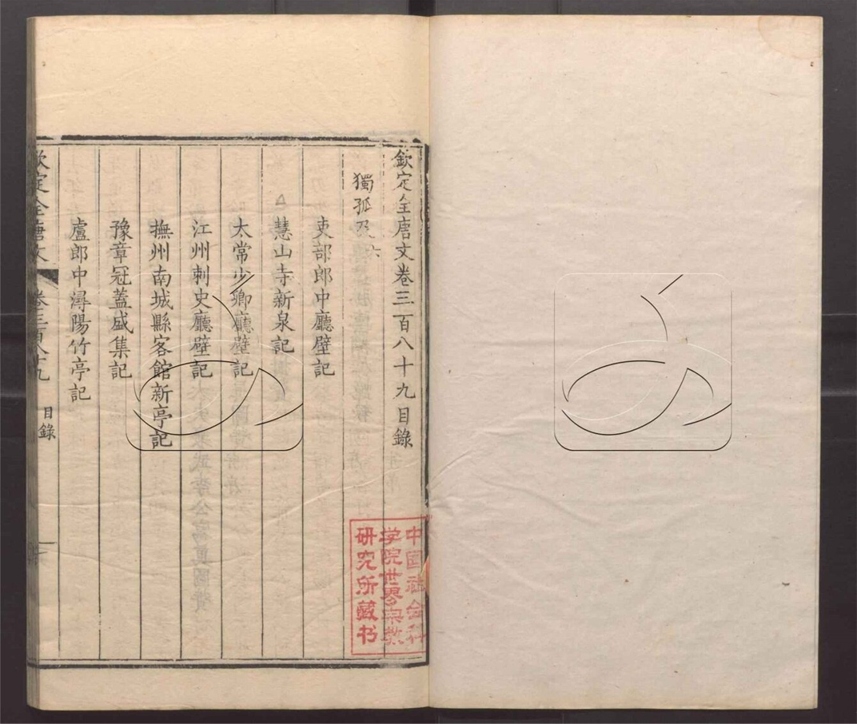 欽定全唐文卷三百八十九目錄
獨孤及六
吏部郎中廳壁記
慧山寺新泉記
太常少卿廳壁記
江州刺史廳壁記
撫州南城縣客館新亭記
豫章冠蓋盛集記
盧郎中潯陽竹亭記
欽定全唐文 卷三百八十九 目錄 一
中国社会科
学院世界宗教
研究所藏书